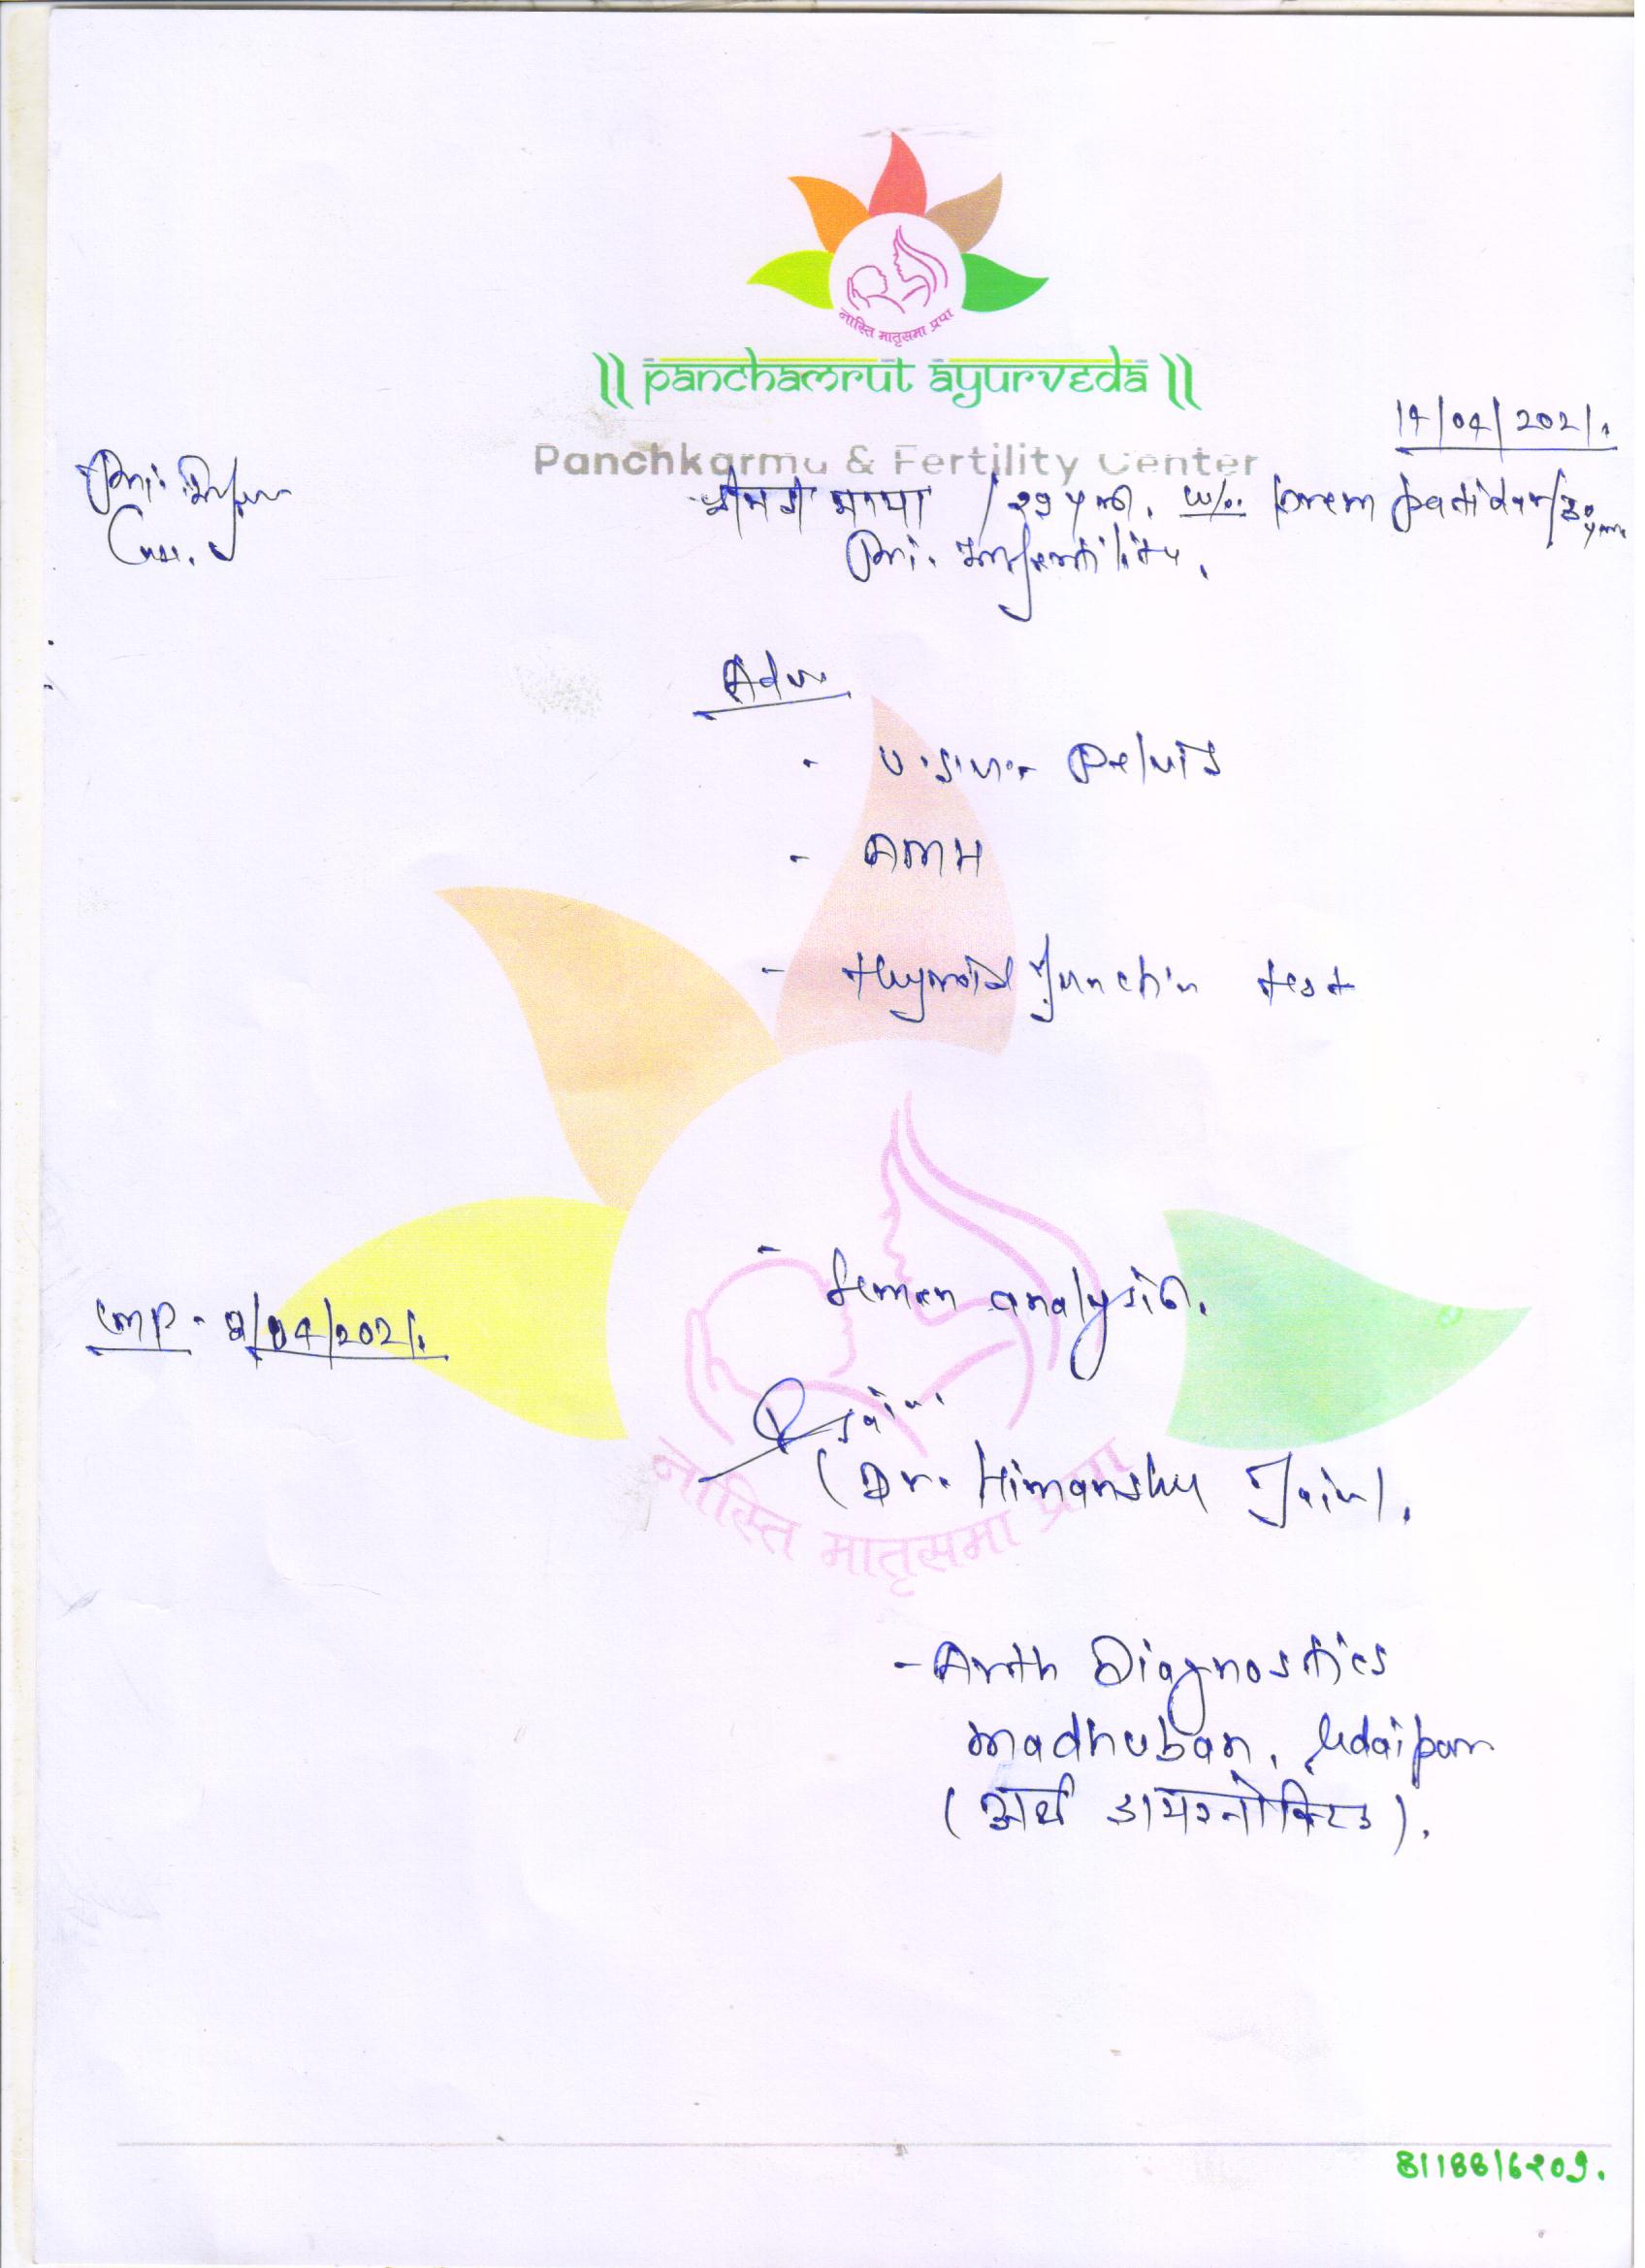 नास्ति मातृसमा प्रपा
|| panchamrut ayurveda ||
14/04/2021.
Panchkarma & Fertility Center
Pri. Infer
Case.
श्रीमती माया / 29 yrs. w/o. Prem patidar/30 yrs.
Pri. Infertility.
Adv.
- U.S.G. Pelvis
- AMH
- thyroid function test
- Semen analysis.
LMP - 9/04/2021.
Jain.
(Dr. Himanshu Jain).
नास्ति मातृसमा प्रपा
- Arth Diagnostics
madhuban, Udaipur
(अर्थ डायग्नोस्टिक).